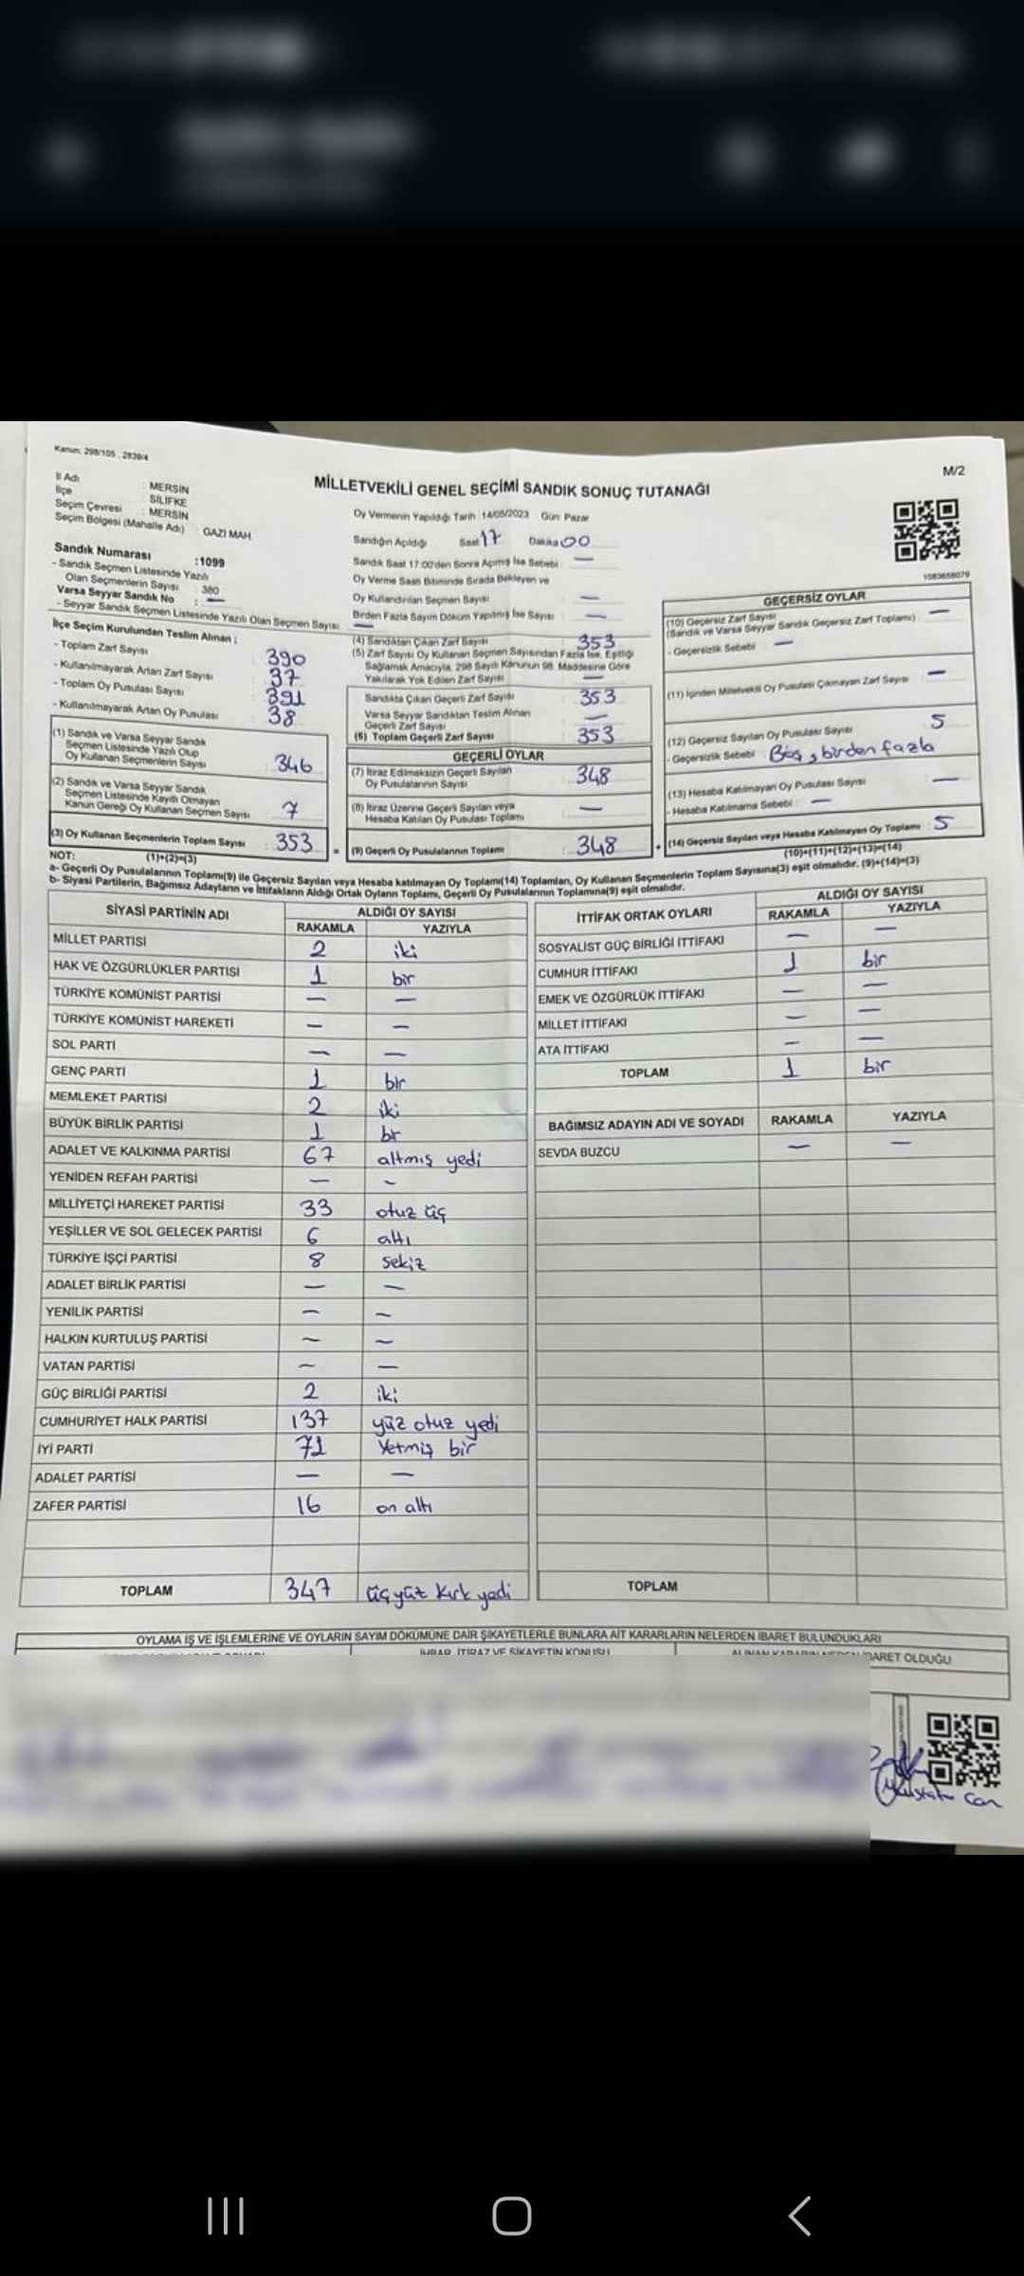 Kanun: 298/105 , 2839/4
M/2
MİLLETVEKİLİ GENEL SEÇİMİ SANDIK SONUÇ TUTANAĞI
İl Adı : MERSİN
İlçe : SİLİFKE
Seçim Çevresi : MERSİN
Seçim Bölgesi (Mahalle Adı) : GAZİ MAH.
Oy Vermenin Yapıldığı Tarih : 14/05/2023 Gün: Pazar
Sandığın Açıldığı Saat 17 Dakika 00
Sandık Saat 17:00'den Sonra Açılmış İse Sebebi : —
Oy Verme Saati Bitiminde Sırada Bekleyen ve
Oy Kullandırılan Seçmen Sayısı —
Birden Fazla Sayım Döküm Yapılmış İse Sayısı —
1083658079
Sandık Numarası :1099
- Sandık Seçmen Listesinde Yazılı
Olan Seçmenlerin Sayısı : 380
Varsa Seyyar Sandık No : —
- Seyyar Sandık Seçmen Listesinde Yazılı Olan Seçmen Sayısı: —
İlçe Seçim Kurulundan Teslim Alınan :
- Toplam Zarf Sayısı 390
- Kullanılmayarak Artan Zarf Sayısı 37
- Toplam Oy Pusulası Sayısı 391
- Kullanılmayarak Artan Oy Pusulası 38
(1) Sandık ve Varsa Seyyar Sandık
Seçmen Listesinde Yazılı Olup
Oy Kullanan Seçmenlerin Sayısı 346
(2) Sandık ve Varsa Seyyar Sandık
Seçmen Listesinde Kayıtlı Olmayan
Kanun Gereği Oy Kullanan Seçmen Sayısı 7
(3) Oy Kullanan Seçmenlerin Toplam Sayısı : 353 =
(1)+(2)=(3)
(4) Sandıktan Çıkan Zarf Sayısı : 353
(5) Zarf Sayısı Oy Kullanan Seçmen Sayısından Fazla İse, Eşitliği
Sağlamak Amacıyla, 298 Sayılı Kanunun 98. Maddesine Göre
Yakılarak Yok Edilen Zarf Sayısı —
Sandıkta Çıkan Geçerli Zarf Sayısı : 353
Varsa Seyyar Sandıktan Teslim Alınan
Geçerli Zarf Sayısı —
(6) Toplam Geçerli Zarf Sayısı : 353
GEÇERLİ OYLAR
(7) İtiraz Edilmeksizin Geçerli Sayılan
Oy Pusulalarının Sayısı 348
(8) İtiraz Üzerine Geçerli Sayılan veya
Hesaba Katılan Oy Pusulası Toplamı —
(9) Geçerli Oy Pusulalarının Toplamı : 348 +
GEÇERSİZ OYLAR
(10) Geçersiz Zarf Sayısı
(Sandık ve Varsa Seyyar Sandık Geçersiz Zarf Toplamı) : —
- Geçersizlik Sebebi : —
(11) İçinden Milletvekili Oy Pusulası Çıkmayan Zarf Sayısı : —
(12) Geçersiz Sayılan Oy Pusulası Sayısı : 5
- Geçersizlik Sebebi : Boş, birden fazla
(13) Hesaba Katılmayan Oy Pusulası Sayısı : —
- Hesaba Katılmama Sebebi : —
(14) Geçersiz Sayılan veya Hesaba Katılmayan Oy Toplamı : 5
(10)+(11)+(12)+(13)=(14)
NOT:
a- Geçerli Oy Pusulalarının Toplamı(9) ile Geçersiz Sayılan veya Hesaba katılmayan Oy Toplamı(14) Toplamları, Oy Kullanan Seçmenlerin Toplam Sayısına(3) eşit olmalıdır. (9)+(14)=(3)
b- Siyasi Partilerin, Bağımsız Adayların ve İttifakların Aldığı Ortak Oyların Toplamı, Geçerli Oy Pusulalarının Toplamına(9) eşit olmalıdır.
SİYASİ PARTİNİN ADI ALDIĞI OY SAYISI
RAKAMLA YAZIYLA
MİLLET PARTİSİ 2 iki
HAK VE ÖZGÜRLÜKLER PARTİSİ 1 bir
TÜRKİYE KOMÜNİST PARTİSİ — —
TÜRKİYE KOMÜNİST HAREKETİ — —
SOL PARTİ — —
GENÇ PARTİ 1 bir
MEMLEKET PARTİSİ 2 iki
BÜYÜK BİRLİK PARTİSİ 1 bir
ADALET VE KALKINMA PARTİSİ 67 altmış yedi
YENİDEN REFAH PARTİSİ — —
MİLLİYETÇİ HAREKET PARTİSİ 33 otuz üç
YEŞİLLER VE SOL GELECEK PARTİSİ 6 altı
TÜRKİYE İŞÇİ PARTİSİ 8 sekiz
ADALET BİRLİK PARTİSİ — —
YENİLİK PARTİSİ — —
HALKIN KURTULUŞ PARTİSİ — —
VATAN PARTİSİ — —
GÜÇ BİRLİĞİ PARTİSİ 2 iki
CUMHURİYET HALK PARTİSİ 137 yüz otuz yedi
İYİ PARTİ 71 Yetmiş bir
ADALET PARTİSİ — —
ZAFER PARTİSİ 16 on altı
TOPLAM 347 üçyüz kırk yedi
İTTİFAK ORTAK OYLARI ALDIĞI OY SAYISI
RAKAMLA YAZIYLA
SOSYALİST GÜÇ BİRLİĞİ İTTİFAKI — —
CUMHUR İTTİFAKI 1 bir
EMEK VE ÖZGÜRLÜK İTTİFAKI — —
MİLLET İTTİFAKI — —
ATA İTTİFAKI — —
TOPLAM 1 bir
BAĞIMSIZ ADAYIN ADI VE SOYADI RAKAMLA YAZIYLA
SEVDA BUZCU — —
TOPLAM
OYLAMA İŞ VE İŞLEMLERİNE VE OYLARIN SAYIM DÖKÜMÜNE DAİR ŞİKAYETLERLE BUNLARA AİT KARARLARIN NELERDEN İBARET BULUNDUKLARI
İHBAR, İTİRAZ VE ŞİKAYETİN KONUSU
ALINAN KARARIN NEDEN İBARET OLDUĞU
Mustafa Can